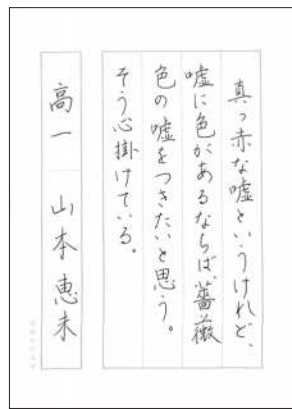 真っ赤な嘘というけれど、
嘘に色があるならば、薔薇
色の嘘をつきたいと思う。
そう心掛けている。
高一　山本恵未